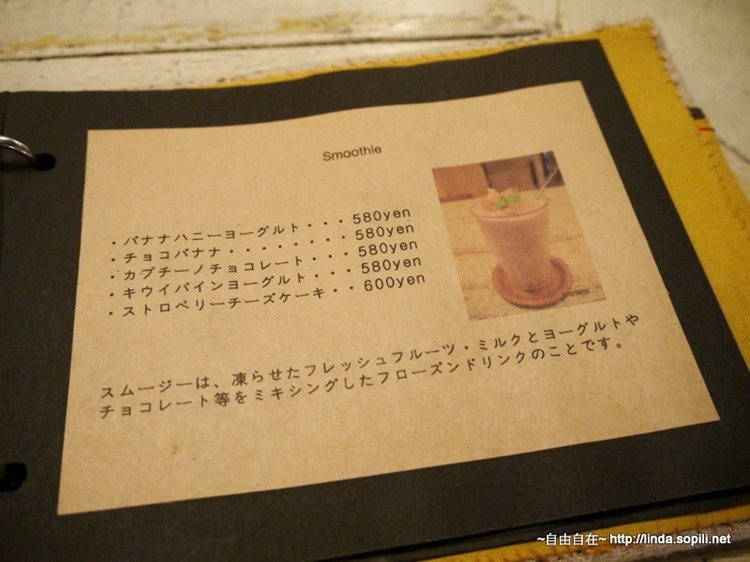 Smoothie
・バナナハニーヨーグルト・・・580yen
・チョコバナナ・・・・・・・・580yen
・カプチーノチョコレート・・・580yen
・キウイパインヨーグルト・・・580yen
・ストロベリーチーズケーキ・・600yen
スムージーは、凍らせたフレッシュフルーツ・ミルクとヨーグルトや
チョコレート等をミキシングしたフローズンドリンクのことです。
~自由自在~ http://linda.sopili.net